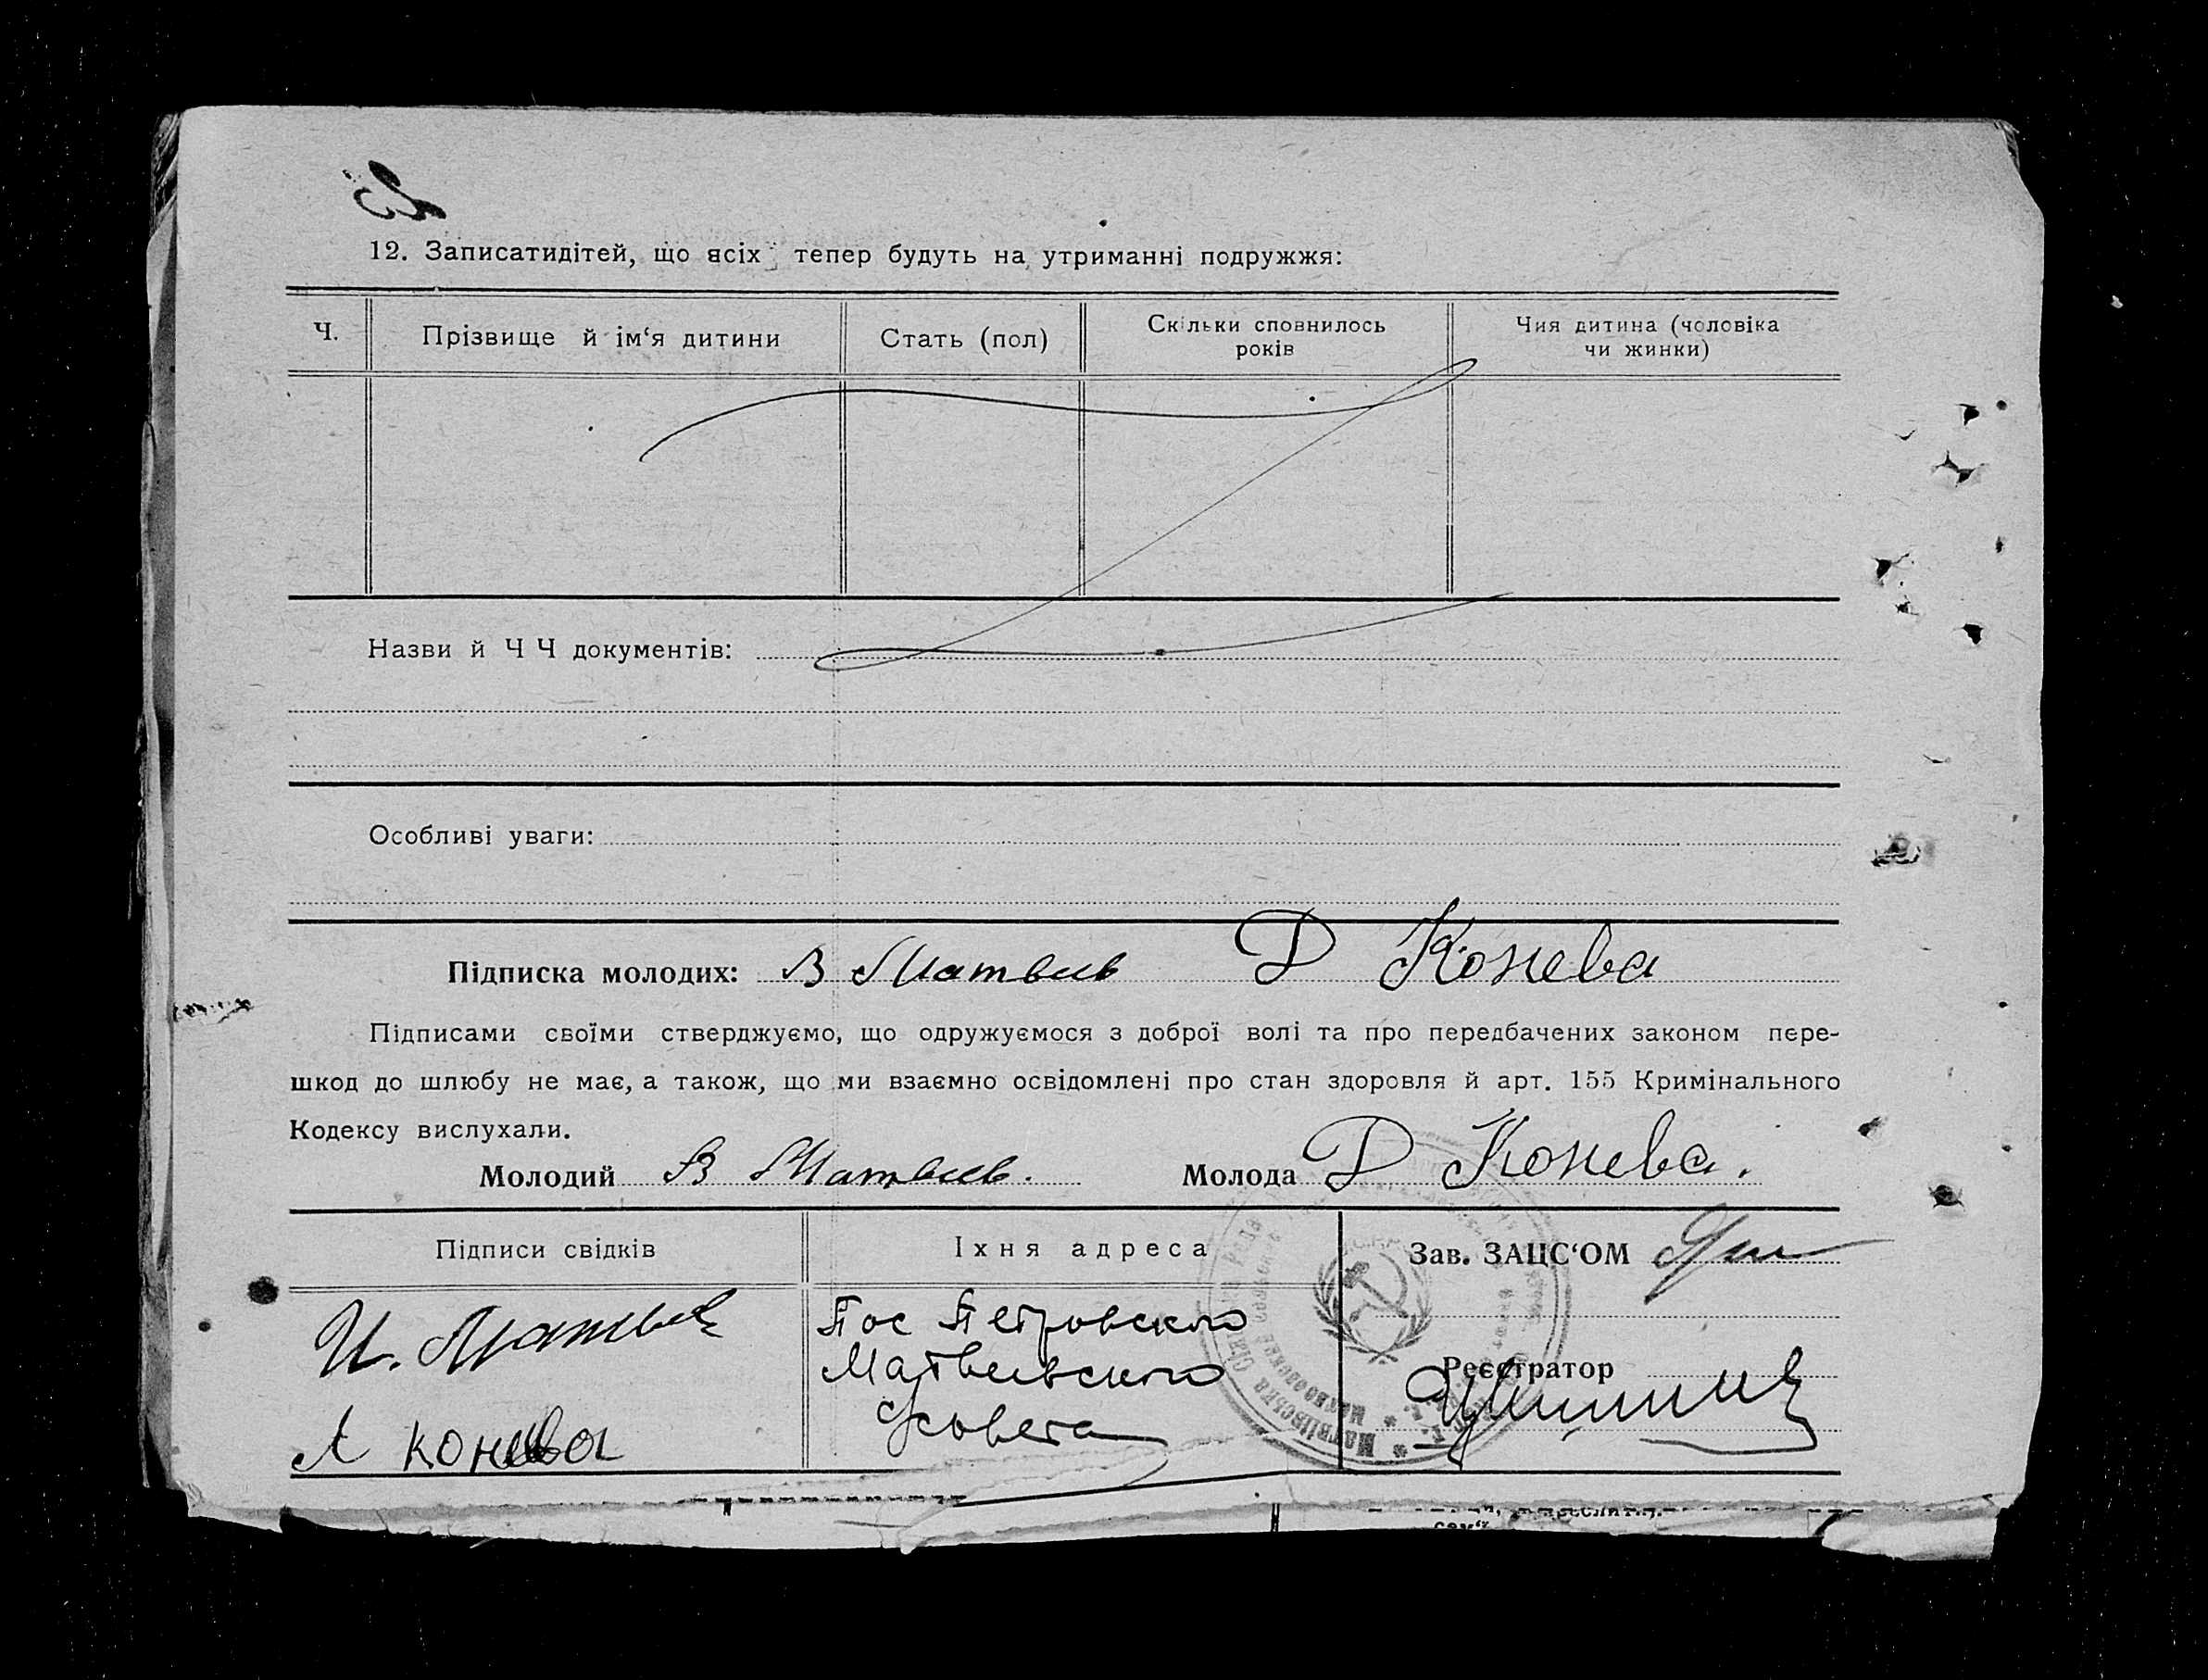 12. Записатидітей, що всіх тепер будуть на утриманні подружжя:
Ч.
Прізвище й ім‘я дитини
Стать (пол)
Скільки сповнилось
років
Чия дитина (чоловіка
чи жинки)
Назви й Ч Ч документів:
Особливі уваги:
Підписка молодих: В Матвеев Д Конева
Підписами своїми стверджуємо, що одружуємося з доброї волі та про передбачених законом пере-
шкод до шлюбу не має, а також, що ми взаємно освідомлені про стан здоровля й арт. 155 Кримінального
Кодексу вислухали.
Молодий В Матвеев. Молода Д Конева.
Підписи свідків
Їхня адреса
Зав. ЗАЦС‘ОМ
И. Матвеев
Пос Петровского
Матвеевского
Совета
Реєстратор
А конева
Матвіївська